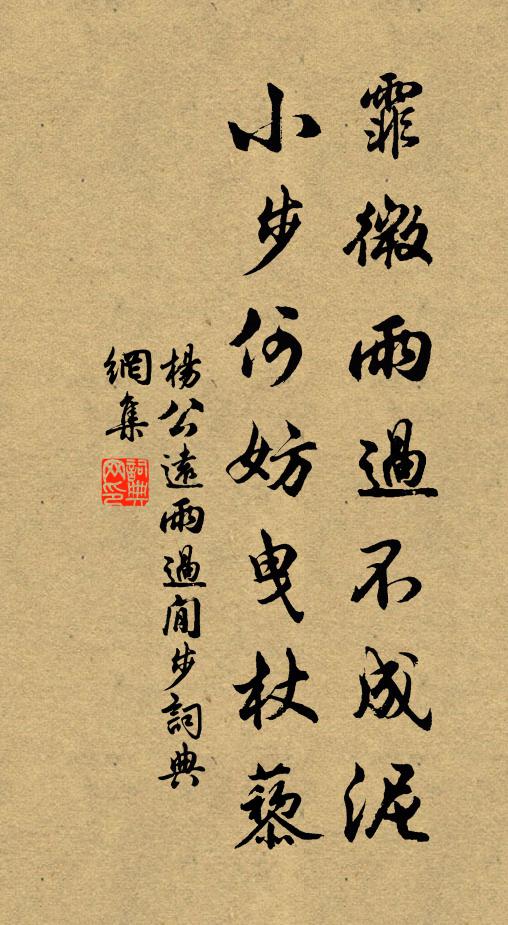 霏微雨過不成泥
小步何妨曳杖藜
楊公遠雨過閒步詞典
網集
詞典
网印